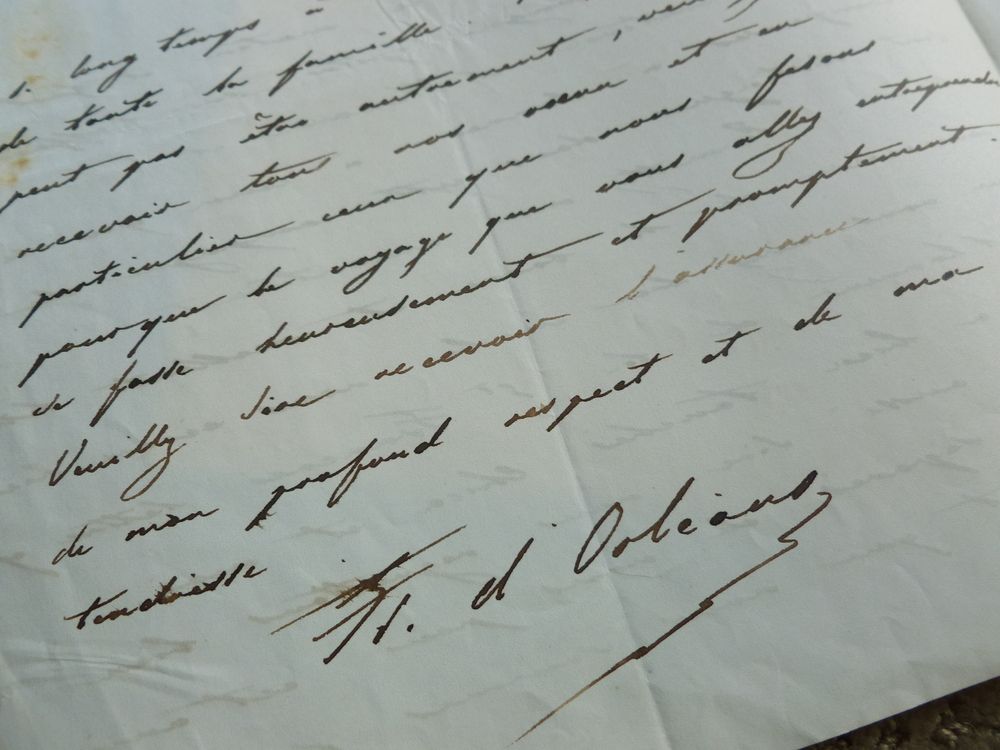 si long temps à
de toute la famille.
peut pas être autrement, veuillez
recevoir tous nos vœux et en
particulier ceux que nous fesons
pourque le voyage que vous allez entreprendre
se fasse heureusement et promptement.
Veuillez Sire recevoir l'assurance
de mon profond respect et de ma
tendresse
Fr. d'Orléans